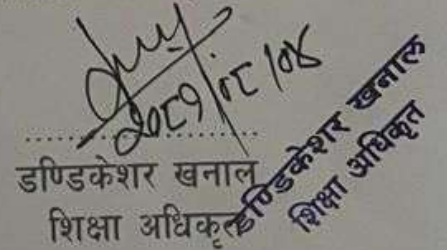 २०८१/०८/०४
डण्डिकेशर खनाल
शिक्षा अधिकृत
डण्डिकेशर खनाल
शिक्षा अधिकृत